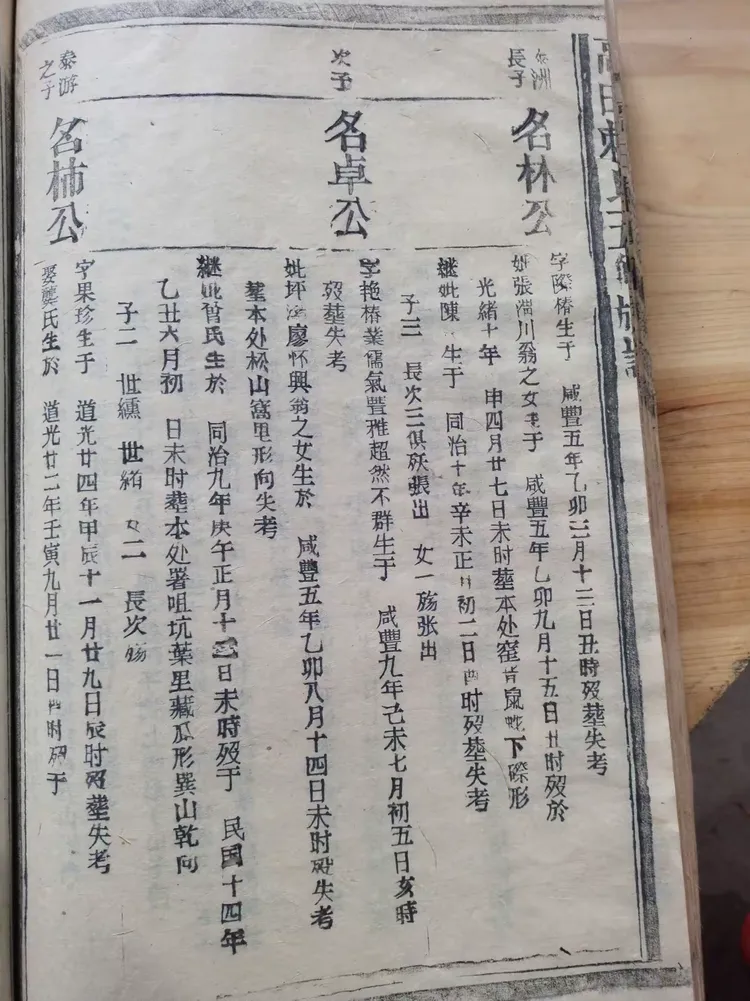 洲
長子
名林公
字際椿生于 咸豐五年乙卯二月十三日丑時歿塟失考
妣張淵川翁之女生于 咸豐五年乙卯九月十五日丑时歿於
光緒十年 申四月廿七日未时塟本处窑背鼠 下際形
継妣陳 生于 同治十年辛未正月初二日酉时歿塟失考
子三 長次三俱殀張出 女一殇张出
次子
名卓公
字艳椿業儒氣豐雅超然不群生于 咸豐九年己未七月初五日亥時
歿塟失考
妣坪 廖怀興翁之女生於 咸豐五年乙卯八月十四日未时歿失考
塟本处松山窩里形向失考
継妣曾氏生於 同治九年庚午正月十 日未時歿于 民國十四年
乙丑六月初 日未时塟本处署咀坑葉里藏瓜形巽山乾向
子二 世纁 世緒 女二 長次殇
泰游
之子
名柿公
字果珍生于 道光廿四年甲辰十一月廿九日辰时歿塟失考
娶龔氏生於 道光廿二年壬寅九月廿一日酉时歿于